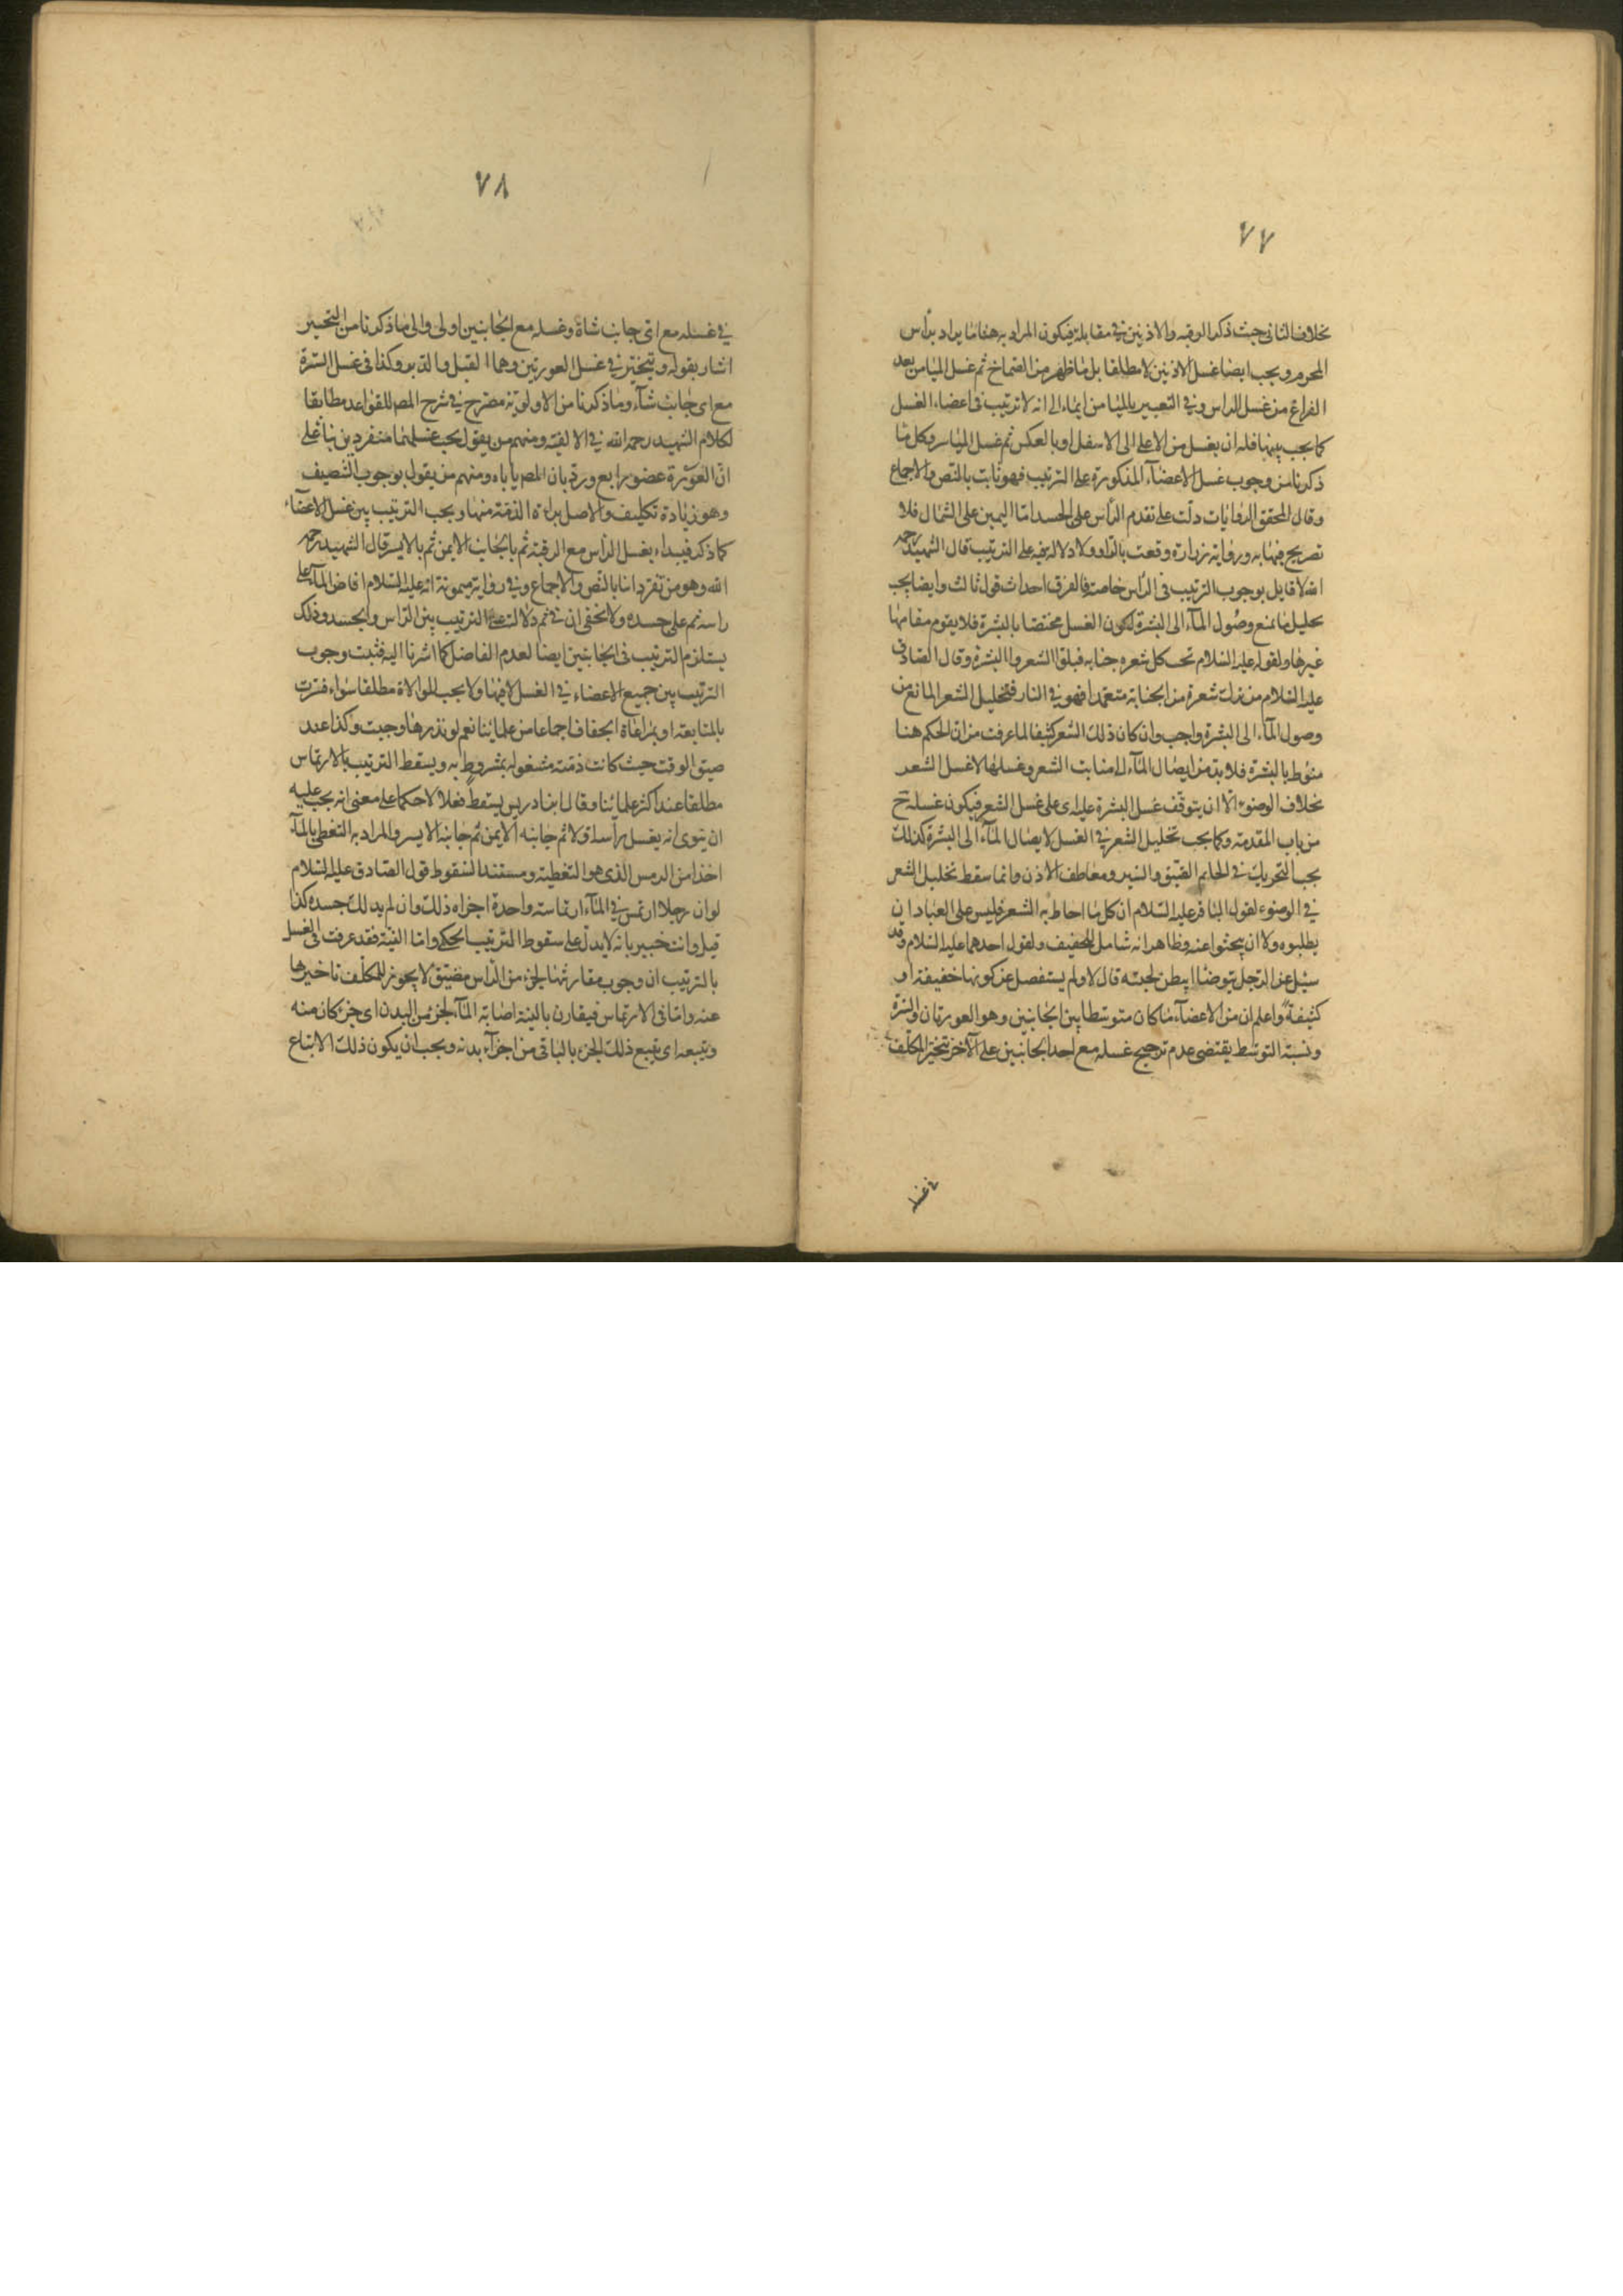 ٧٧
بخلاف الثانى حيث ذكر الرقبه والاذنين فى مقابلة فيكون المراد به هنا ما يراد برأس
المحرم ويجب ايضا غسل الاذنين لا مطلقا بل ما ظهر من الصماخ ثم غسل الميامن بعد
الفراغ من غسل الراس وفى التعبير بالميامن ايماء الى انه لا ترتيب فى اعضاء الغسل
كما يجب بينها فله ان يغسل من الاعلى الى الاسفل او بالعكس ثم غسل المياسر وكل ما
ذكرنا من وجوب غسل الاعضآء المذكورة على الترتيب فهو ثابت بالنص والاجماع
وقال المحقق الروايات دلت على تقدم الرأس على الجسد اما اليمين على الشمال فلا
تصريح فيها به ورواية زرارة وقعت بالواو ولا دلالة فيه على الترتيب قال الشهيد رحمه
الله لا قايل بوجوب الترتيب فى الرأس خاصة فالفرق احداث قول ثالث وايضا يجب
تخليل ما يمنع وصول المآء الى البشرة لكون الغسل مختصا بالبشرة فلا يقوم مقامها
غيرها ولقوله عليه السلام تحت كل شعره جنابه فبلوا الشعر والبشرة وقال الصادق
عليه السلام من ترك شعرة من الجنابة متعمدا فهو فى النار فتخليل الشعر المانع من
وصول المآء الى البشرة واجب وان كان ذلك الشعر كثيفا لما عرفت من ان الحكم هنا
منوط بالبشرة فلا بد من ايصال المآء الى منابت الشعر وغسلها لا غسل الشعر
بخلاف الوضوء الا ان يتوقف غسل البشرة عليه اى على غسل الشعر فيكون غسله ح
من باب المقدمة وكما يجب تخليل الشعر فى الغسل لايصال المآء الى البشرة كذلك
يجب التحريك فى الخاتم الضيق والسير ومعاطف الاذن وانما سقط تخليل الشعر
فى الوضوء لقول الباقر عليه السلام ان كل ما احاط به الشعر فليس على العباد ان
يطلبوه ولا ان يبحثوا عنه وظاهر انه شامل للخفيف ولقول احدهما عليه السلام وقد
سئل عن الرجل يتوضا ايبطن لحيته قال لا ولم يستفصل عن كونها خفيفة او
كثيفة واعلم ان من الاعضآء ما كان متوسطا بين الجانبين وهو العورتان والسرة
ونسبة التوسط يقتضى عدم ترجيح غسله مع احد الجانبين على الآخر فتخير المكلف
فى غسله
٧٨
فى غسله مع اى جانب شاء وغسله مع الجانبين اولى والى ما ذكرنا من التخيير
اشار بقوله ويتخير فى غسل العورتين وهما القبل والدبر وكذا فى غسل السرة
مع اى جانب شآء وما ذكرنا من الاولوية مصرح فى شرح المص للقواعد مطابقا
لكلام الشهيد رحمه الله فى الالفية ومنهم من يقول يجب غسلهما منفردين بنا على
ان العورة عضو رابع ورد بان المص ياباه ومنهم من يقول بوجوب التنصيف
وهو زيادة تكليف والاصل براءة الذمة منها ويجب الترتيب بين غسل الاعضآء
كما ذكر فيبداء بغسل الرأس مع الرقبة ثم بالجانب الايمن ثم بالايسر قال الشهيد رحمه
الله وهو من تفرداتنا بالنص والاجماع وفى رواية ميمونة انه عليه السلام افاض المآء على
راسه ثم على جسده ولا يخفى ان فى ثم دلالة على الترتيب بين الرأس والجسد وذلك
يستلزم الترتيب فى الجانبين ايضا لعدم الفاصل كما اشرنا اليه فثبت وجوب
الترتيب بين جميع الاعضاء فى الغسل لا فيها ولا يجب الموالاة مطلقا سواء فسرت
بالمتابعة او بمراعاة الجفاف اجماعا من علمايننا نعم لو نذرها وجبت وكذا عند
ضيق الوقت حيث كانت ذمته مشغوله بمشروط به ويسقط الترتيب بالارتماس
مطلقا عند اكثر علمائنا وقال ابن ادريس يسقط فعلا لا حكما على معنى انه يجب عليه
ان ينوى انه يغسل رأسه اولا ثم جانبه الايمن ثم جانبه الايسر والمراد به التغطى بالمآء
اخذا من الرمس الذى هو التغطية ومستند السقوط قول الصادق عليه السلام
لو ان رجلا ارتمس فى المآء ارتماسة واحدة اجزاه ذلك وان لم يدلك جسده كذا
قيل وانت خبير بانه لا يدل على سقوط الترتيب الحكمى واما النية فقد عرفت فى الغسل
بالترتيب ان وجوب مقارنتها لجزء من الرأس مضيق لا يجوز للمكلف تاخيرها
عنه واما فى الارتماس فيقارن بالنية اصابة المآء لجزء من البدن اى جزء كان منه
ويتبعه اى يتبع ذلك الجزء بالباقى من اجزآء بدنه ويجب ان يكون ذلك الاتباع